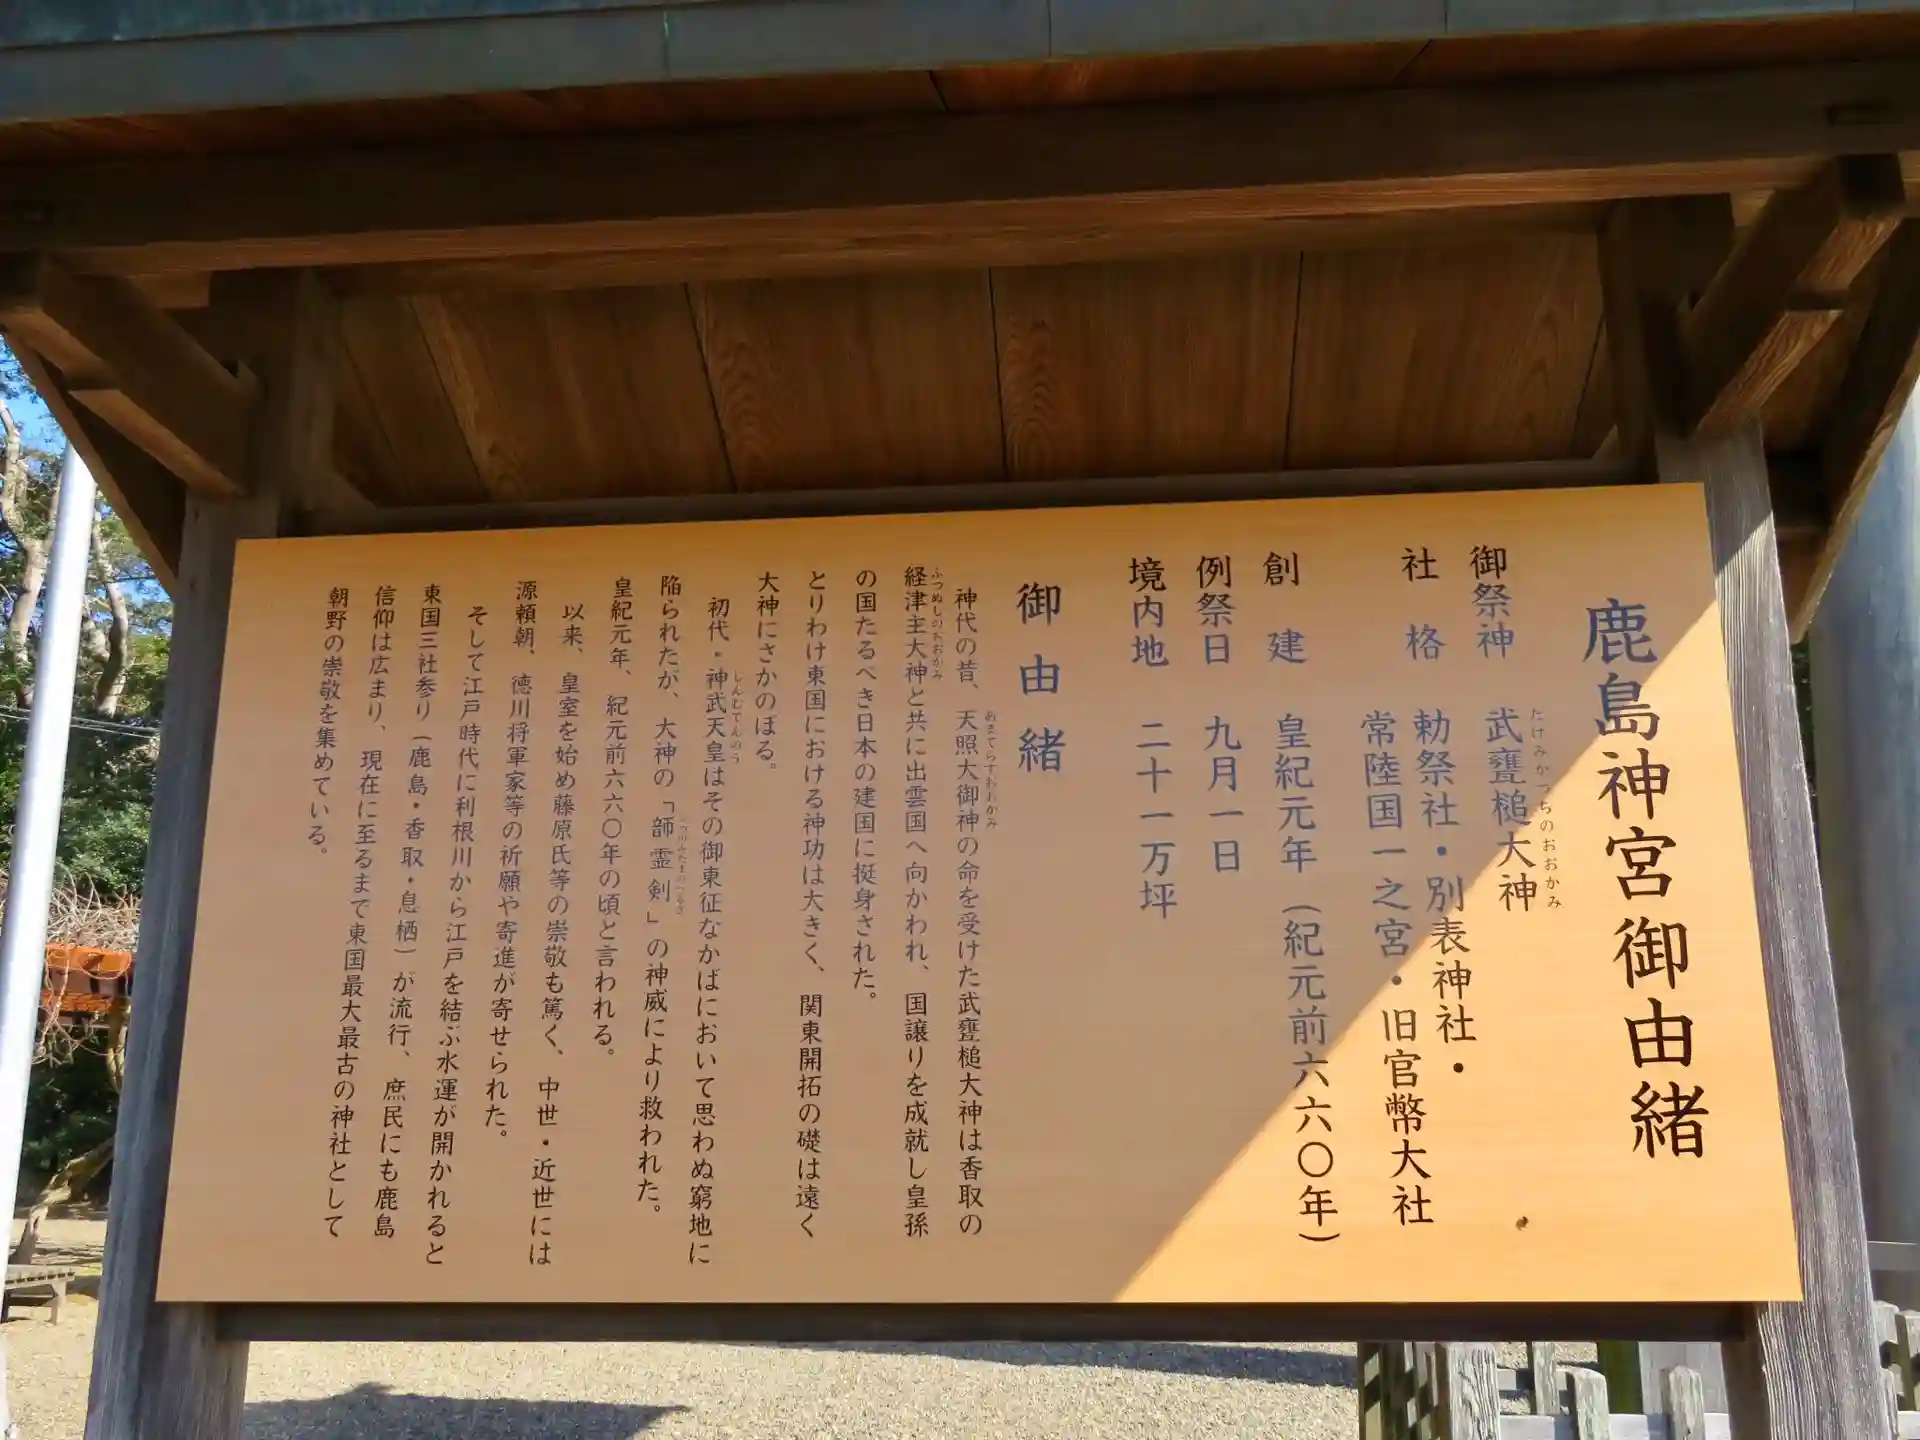 鹿島神宮御由緒
御祭神 武甕槌大神
たけみかつちのおおかみ
社格 勅祭社・別表神社・
常陸国一之宮・旧官幣大社
創建 皇紀元年（紀元前六六〇年）
例祭日 九月一日
境内地 二十一万坪
御由緒
神代の昔、天照大御神の命を受けた武甕槌大神は香取の
あまてらすおおかみ
経津主大神と共に出雲国へ向かわれ、国譲りを成就し皇孫
ふつぬしのおおかみ
の国たるべき日本の建国に挺身された。
とりわけ東国における神功は大きく、関東開拓の礎は遠く
大神にさかのぼる。
初代・神武天皇はその御東征なかばにおいて思わぬ窮地に
じんむてんのう
陥られたが、大神の「韴霊剣」の神威により救われた。
皇紀元年、紀元前六六〇年の頃と言われる。
以来、皇室を始め藤原氏等の崇敬も篤く、中世・近世には
源頼朝、徳川将軍家等の祈願や寄進が寄せられた。
そして江戸時代に利根川から江戸を結ぶ水運が開かれると
東国三社参り（鹿島・香取・息栖）が流行、庶民にも鹿島
信仰は広まり、現在に至るまで東国最大最古の神社として
朝野の崇敬を集めている。